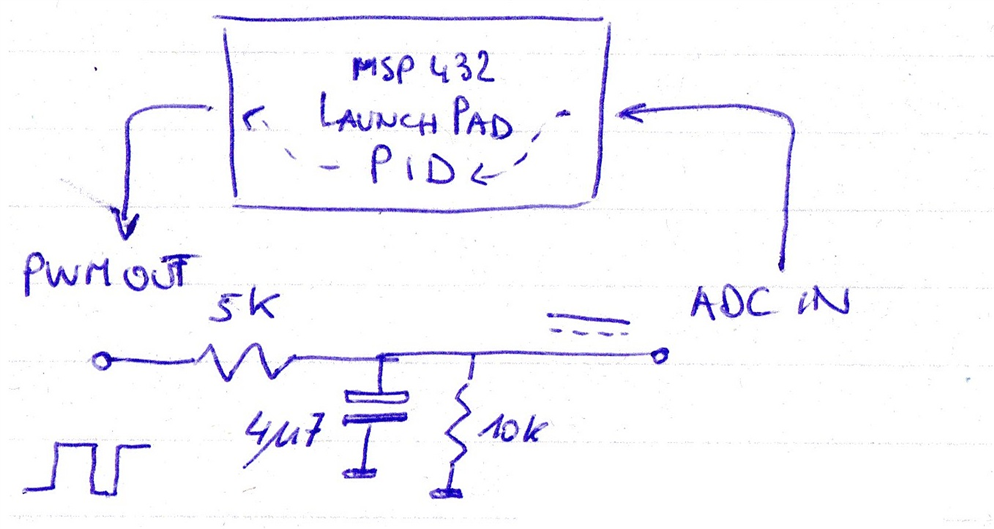 MSP 432
LAUNCHPAD
PID
PWM OUT
5K
ADC IN
4µ7
10k